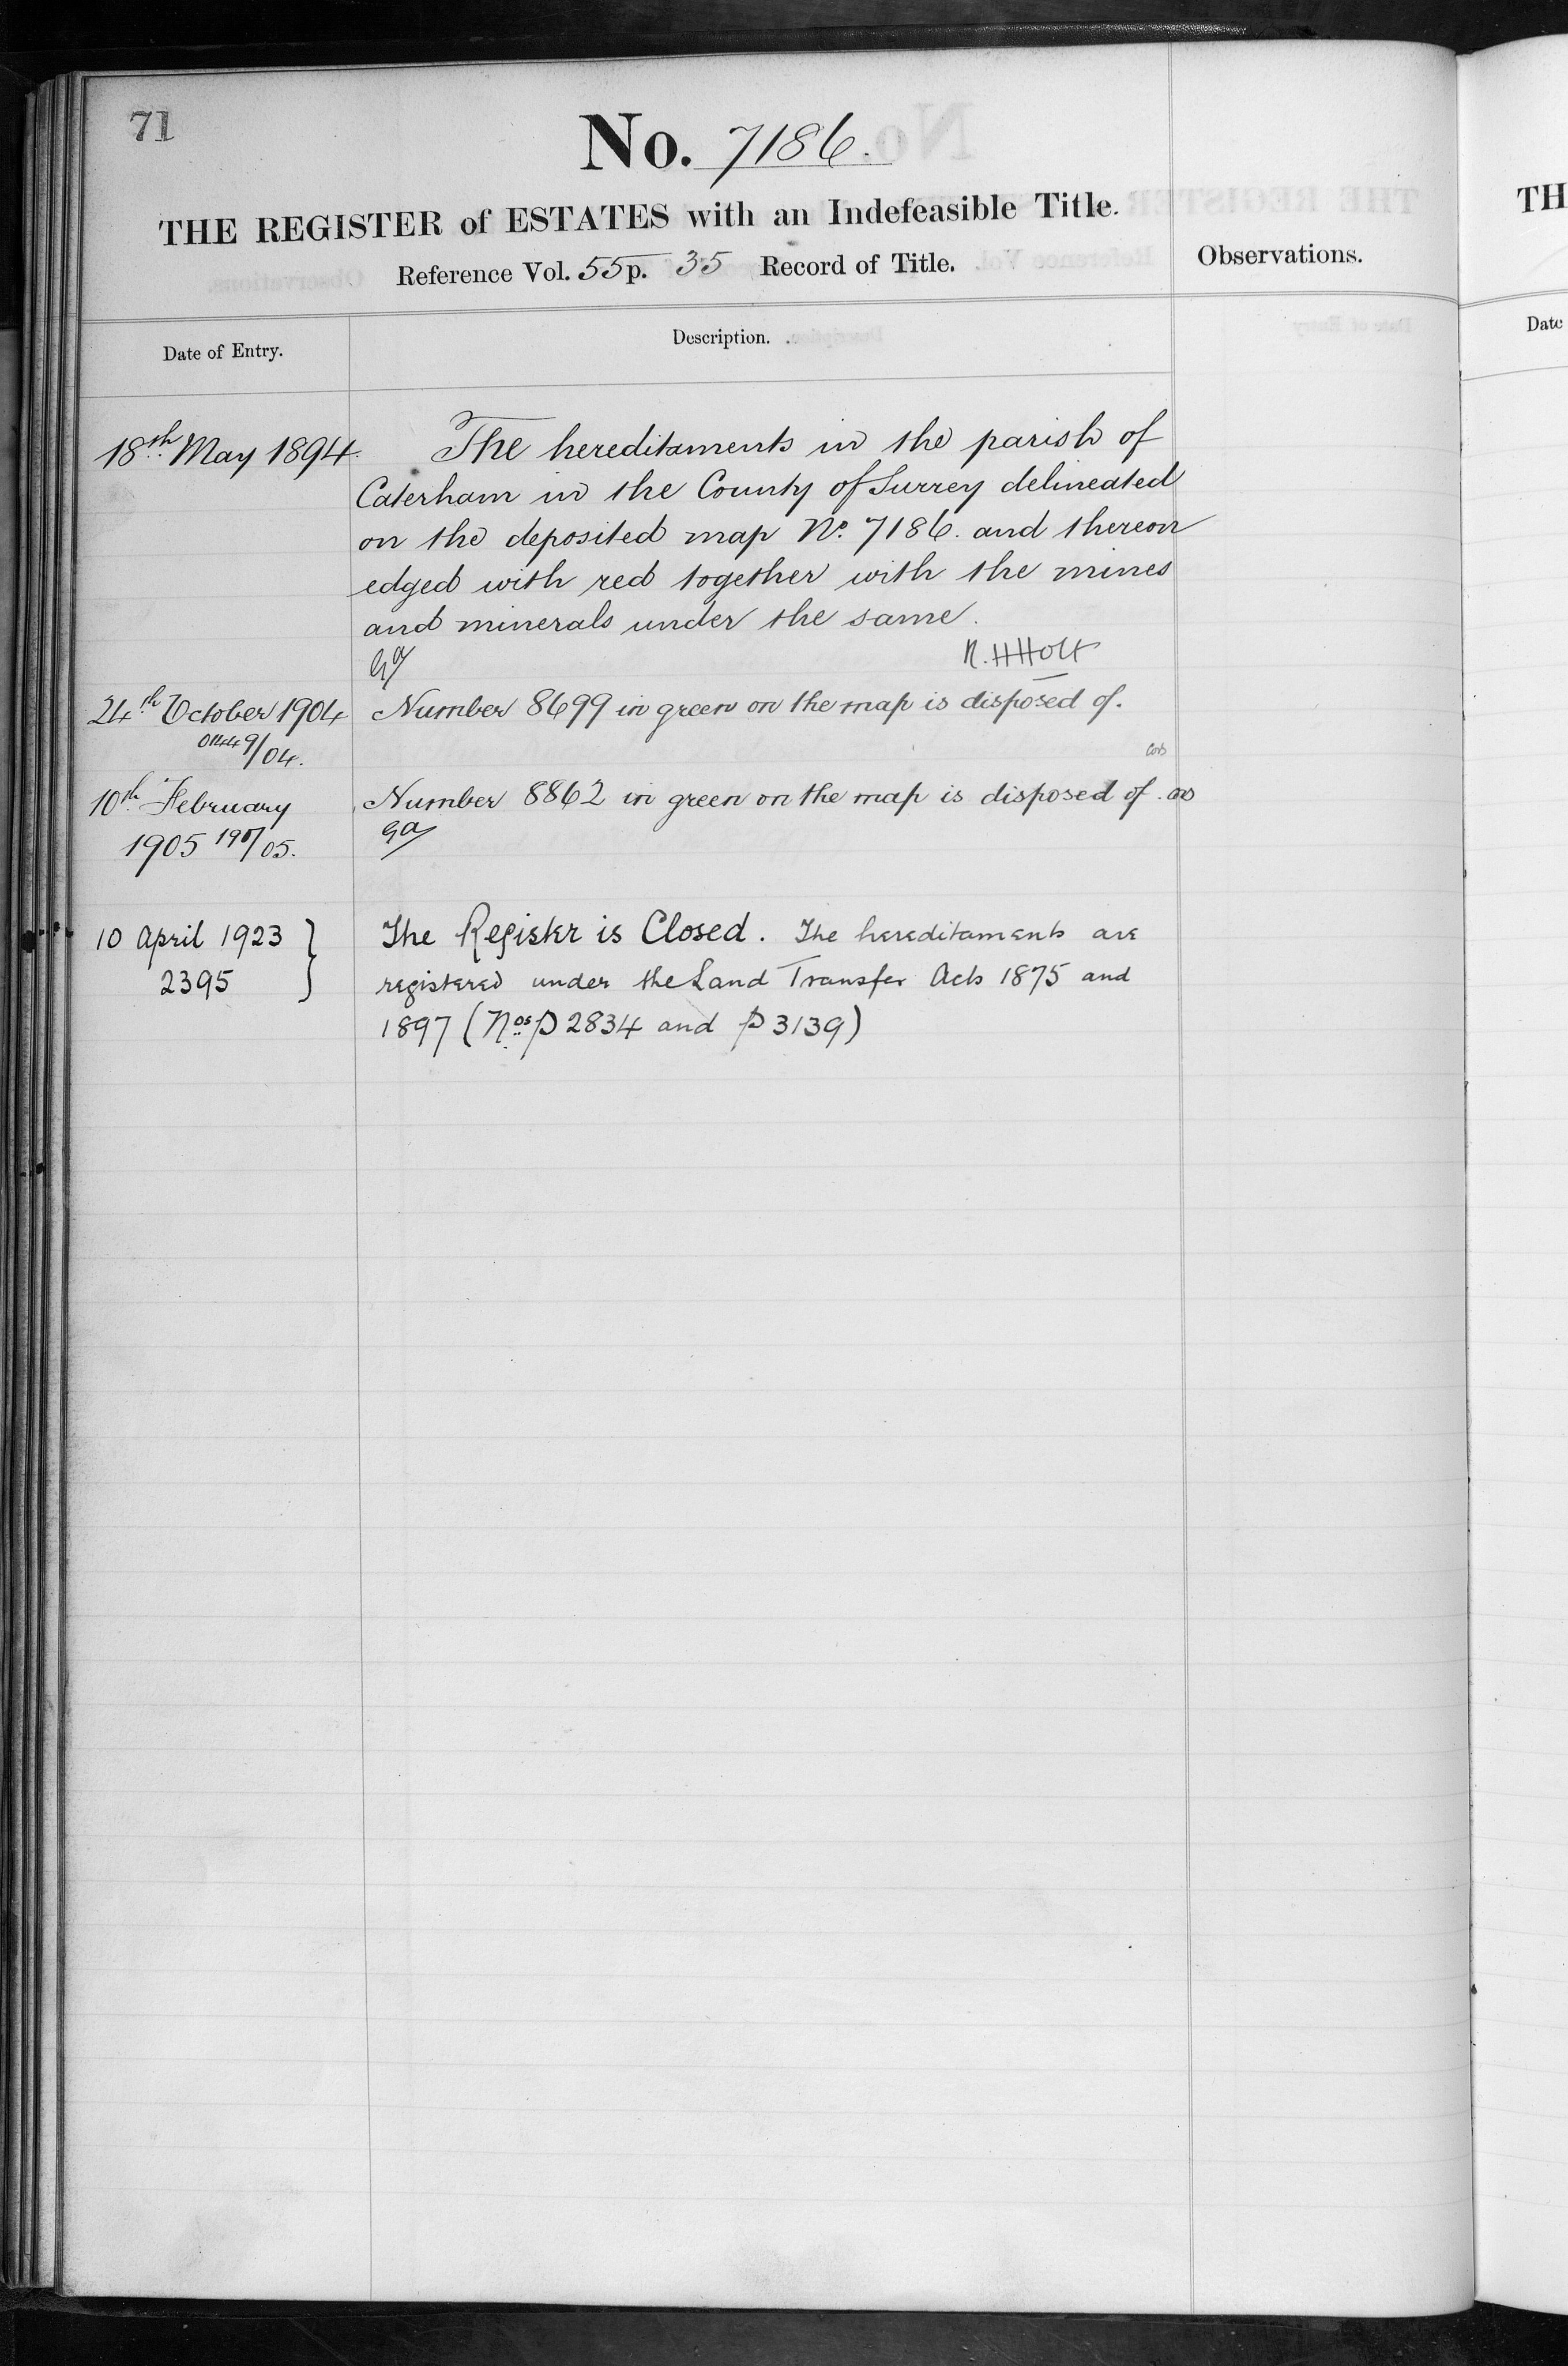 71
No. 7186.
THE REGISTER of ESTATES with an Indefeasible Title.
Reference Vol. 55 p. 35 Record of Title.
Observations.
Date of Entry.
Description.
18th May 1894.
The hereditaments in the parish of
Caterham in the County of Surrey delineated
on the deposited map No. 7186. and thereon
edged with red together with the mines
and minerals under the same.
R.H Holt
24th October 1904
9/04.
Number 8699 in green on the map is disposed of.
10th February
1905 /05.
Number 8862 in green on the map is disposed of.
ga
10 April 1923 }
2395
The Register is Closed. The hereditaments are
registered under the Land Transfer Acts 1875 and
1897 (Nos P 2834 and P 3139)
TH
Date